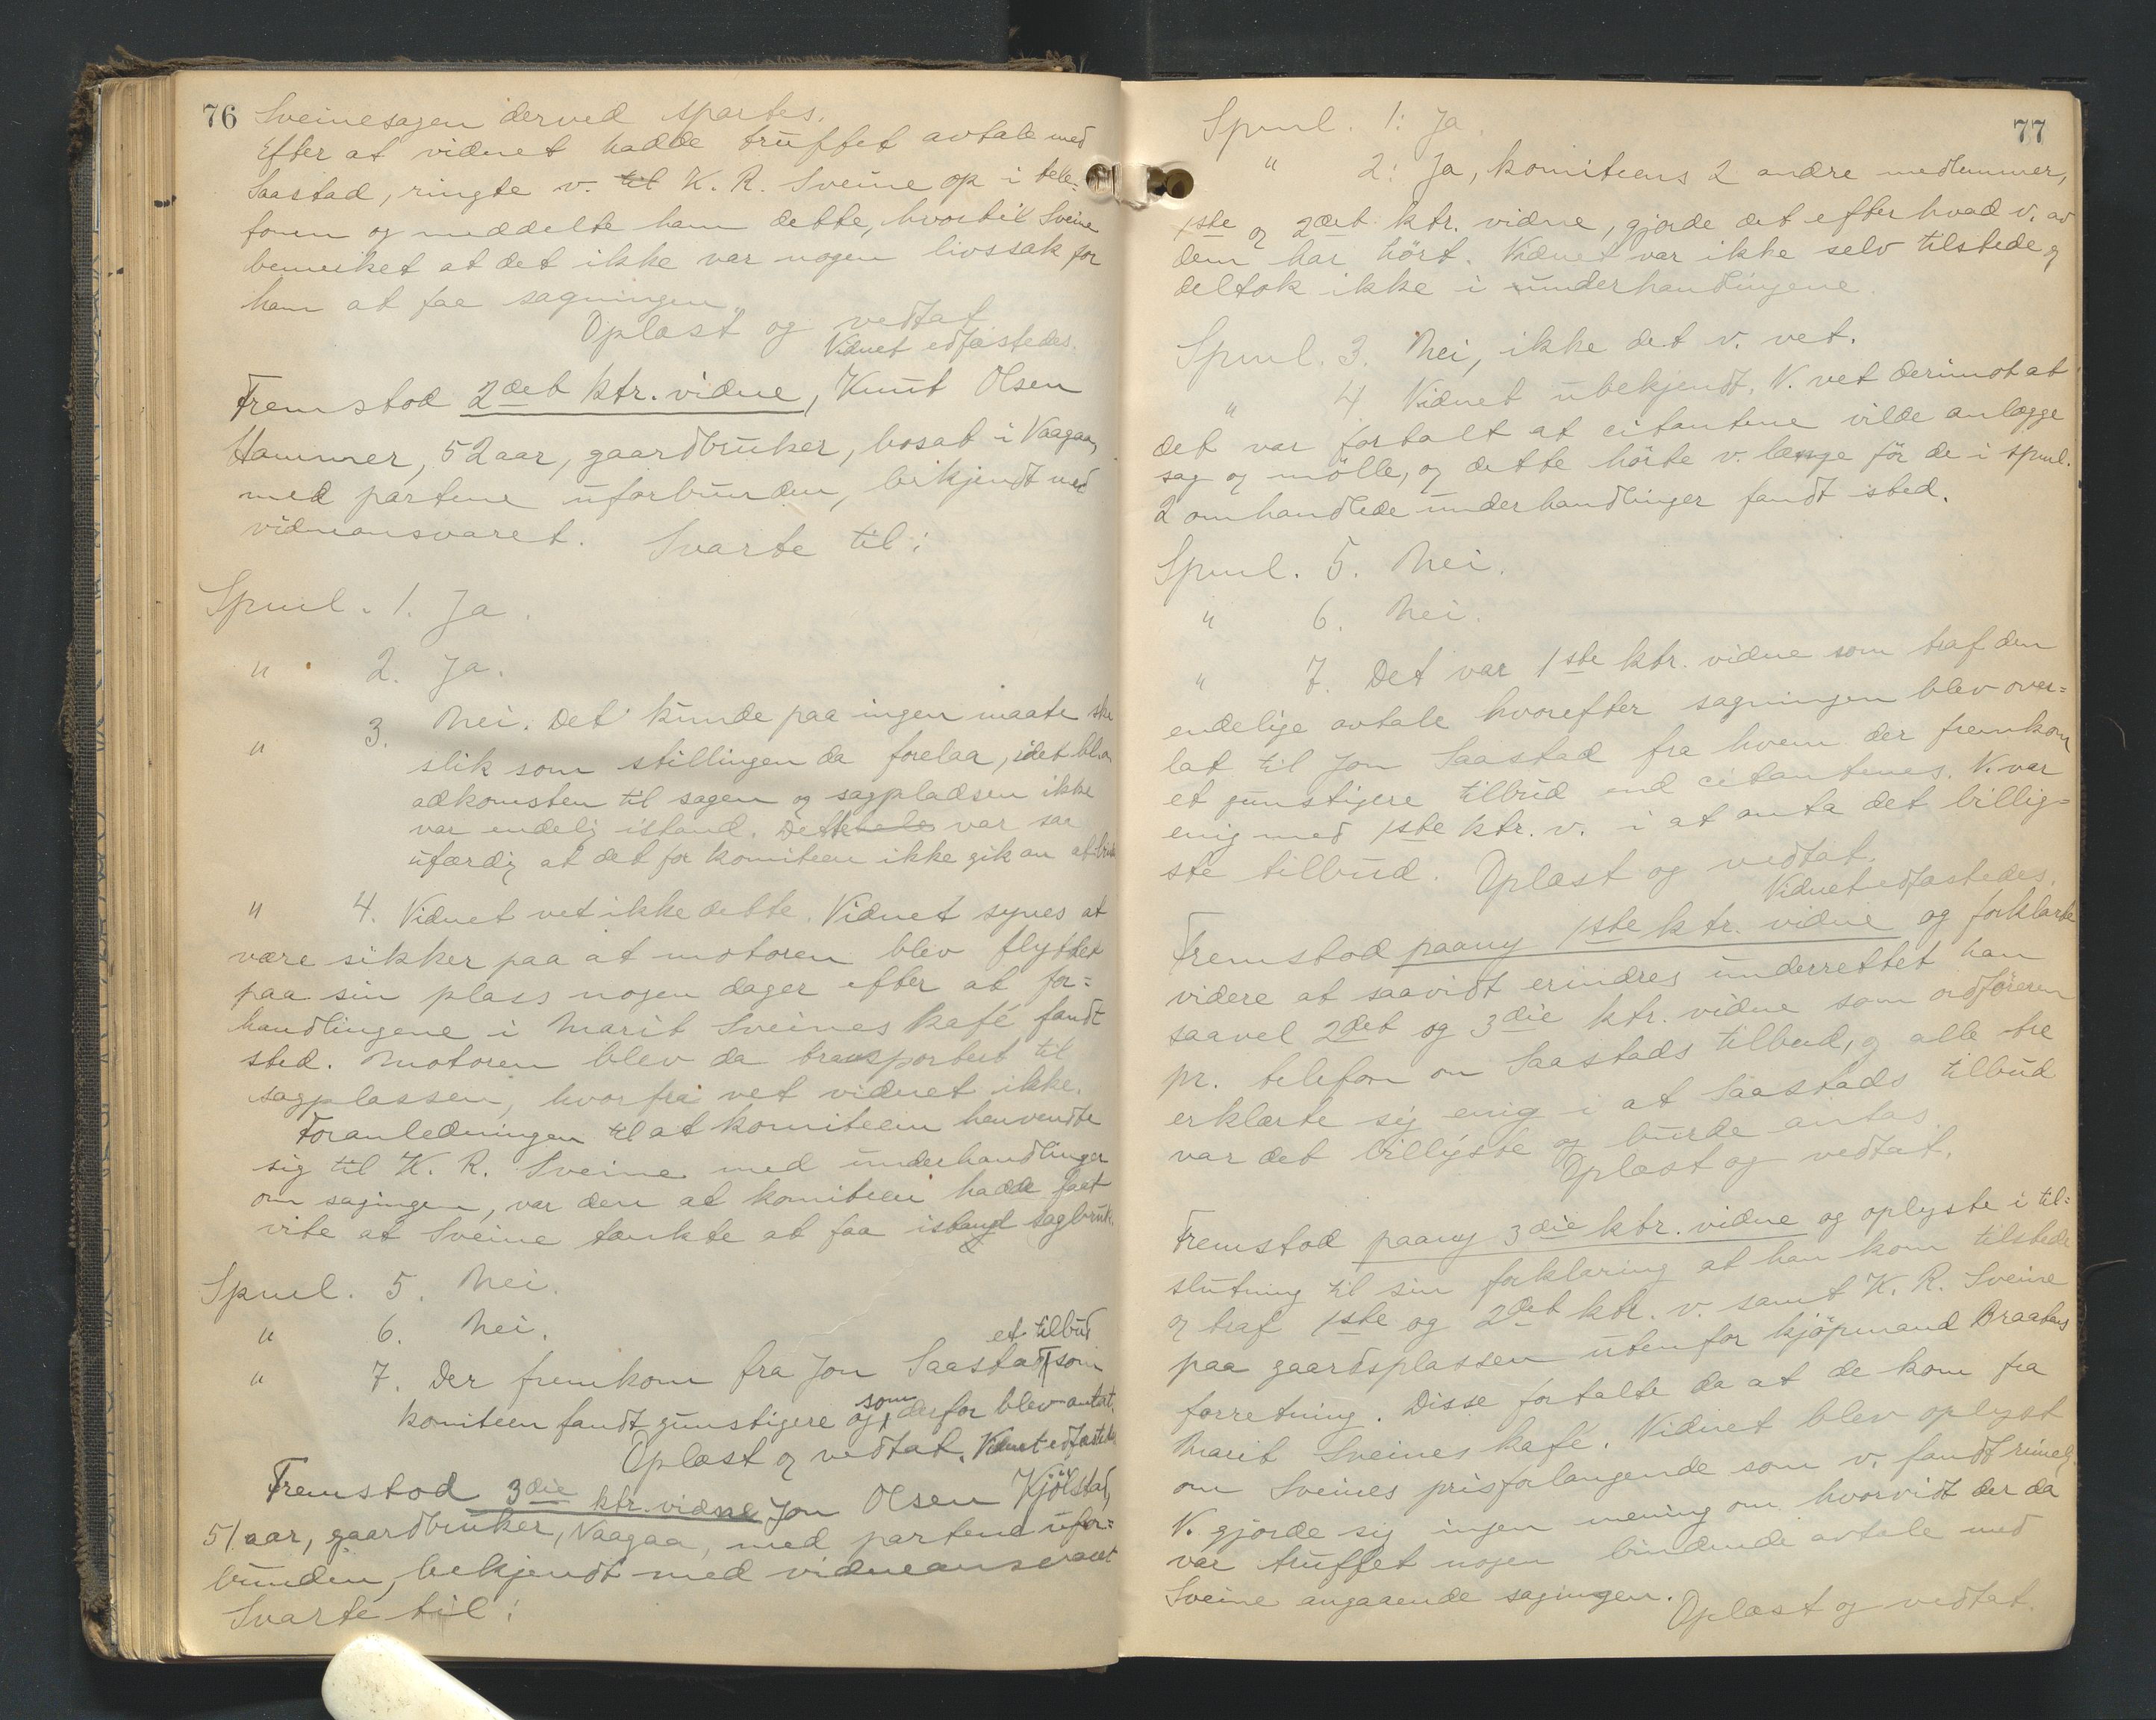 76
Sveinesagen derved spartes.
Efter at vidnet hadde truffet avtale med
Saastad, ringte v. til K. R. Sveine op i tele=
fonen og meddelte ham dette, hvortil Sveine
bemerket at det ikke var nogen livssak for
ham at faa sagningen.
Oplæst og vedtat
Vidnet edfæstedes.
Fremstod 2det ktr. vidne, Knut Olsen
Hammer, 52 aar, gaardbruker, bosat i Vaagaa,
med partene uforbunden, bekjendt med
vidneansvaret. Svarte til:
Spml. 1. Ja.
" 2. Ja.
" 3. Nei. Det kunde paa ingen maate ske
slik som stillingen da forelaa, idet bl.a.
adkomsten til sagen og sagpladsen ikke
var endelig istand. Dette var saa
ufærdig at det for komiteen ikke gik an at
" 4. Vidnet vet ikke dette. Vidnet synes at
være sikker paa at motoren blev flyttet
paa sin plass nogen dager efter at for=
handlingene i Marit Sveines kafé fandt
sted. Motoren blev da transportert til
sagplassen, hvorfra vet vidnet ikke.
Foranledningen til at komiteen henvendte
sig til K. R. Sveine med underhandlinger
om sagingen, var den at komiteen hadde faat
vite at Sveine tænkte at faa istand sagbruk.
Spml. 5. Nei.
" 6. Nei.
et tilbud
" 7. Der fremkom fra Jon Saastad som
som
komiteen fandt gunstigere og derfor blev antat.
Oplæst og vedtat. Vidnet edfæstedes
Fremstod 3die ktr. vidne Jon Olsen Kjölstad,
51 aar, gaardbruker, Vaagaa, med partene ufor=
bunden, bekjendt med vidneansvaret
Svarte til:
77
Spml. 1: Ja.
" 2: Ja, komiteens 2 andre medlemmer,
1ste og 2det ktr. vidne, gjorde det efter hvad v. av
dem har hört. Vidnet var ikke selv tilstede og
deltok ikke i underhandlingene.
Spml. 3. Nei, ikke det v. vet.
" 4. Vidnet ubekjendt. V. vet derimot at
det var fortalt at citantene vilde anlægge
sag og mölle, og dette hörte v. længe för de i spml.
2 omhandlede underhandlinger fandt sted.
Spml. 5. Nei.
" 6. Nei.
" 7. Det var 1ste ktr. vidne som traf den
endelige avtale hvorefter sagningen blev over=
lat til Jon Saastad fra hvem der fremkom
et gunstigere tilbud end citantenes. V. var
enig med 1ste ktr. v. i at anta det billig=
ste tilbud. Oplæst og vedtat.
Vidnet edfæstedes.
Fremstod paany 1ste ktr. vidne og forklarte
videre at saavidt erindres underrettet han
saavel 2det og 3die ktr. vidne som ordföreren
pr. telefon om Saastads tilbud, og alle tre
erklærte sig enig i at Saastads tilbud
var det billigste og burde antas
Oplæst og vedtat.
Fremstod paany 3die ktr. vidne og oplyste i til=
slutning til sin forklaring at han kom tilstede
og traf 1ste og 2det ktr. v. samt K. R. Sveine
paa gaardsplassen utenfor kjöpmand Braatens
forretning. Disse fortalte da at de kom fra
Marit Sveines kafé. Vidnet blev oplyst
om Sveines prisforlangende som v. fandt rimelig.
V. gjorde sig ingen mening om hvorvidt der da
var truffet nogen bindende avtale med
Sveine angaaende sagingen.
Oplæst og vedtat.